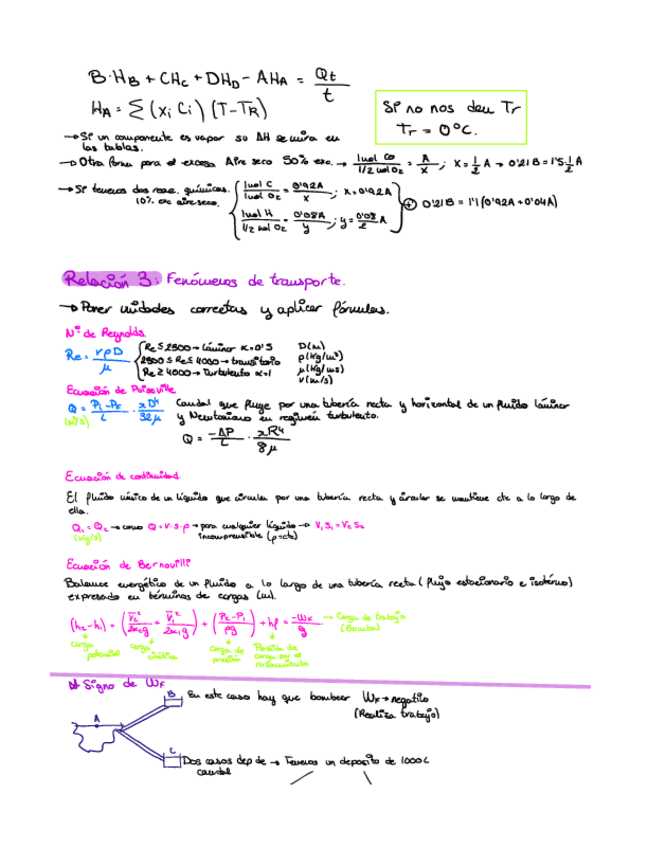 B·H_B + CH_C + DH_D - AH_A = Qt/t
H_A = Σ (x_i C_i) (T - T_R)
Si no nos dan Tr
Tr = 0°C.
→ Si un componente es vapor su ΔH se mira en
las tablas.
→ Otra forma para el exceso Aire seco 50% exc. → 1mol CO / 1/2 mol O₂ = A/x ; x = 1/2 A → 0'21B = 1'5·1/2 A
→ Si tenemos dos reac. químicas.
10% exc aire seco.
1mol C / 1mol O₂ = 0'92A / x ; x = 0'92A
1mol H / 1/2 mol O₂ = 0'08A / y ; y = 0'08/2 A
⊕ 0'21B = 1'1 (0'92A + 0'04A)
Relación 3: Fenómenos de transporte.
→ Poner unidades correctas y aplicar fórmulas.
Nº de Reynolds.
Re = vρD / μ
Re ≤ 2300 → Láminar α = 0'5
2300 ≤ Re ≤ 4000 → transitorio
Re ≥ 4000 → Turbulento α = 1
D(m)
ρ(kg/m³)
μ(kg/ms)
v(m/s)
Ecuación de Poiseville
Q = P₁ - P₂ / L · πD⁴ / 32μ
(m³/s)
Caudal que fluye por una tubería recta y horizontal de un fluido láminar
y Newtoniano en regimen turbulento.
Q = -ΔP / L · πR⁴ / 8μ
Ecuación de continuidad
El fluido másico de un líquido que circula por una tubería recta y circular se mantiene cte a lo largo de
ella.
Q₁ = Q₂ → como Q = v·s·ρ → para cualquier líquido → V₁S₁ = V₂S₂
(kg/s) incompresible (ρ=cte)
Ecuación de Bernouilli
Balance energético de un fluido a lo largo de una tubería recta (flujo estacionario e isotérmo)
expresado en términos de cargas (m).
(h₂-h₁) + (V₂²/2α₂g + V₁²/2α₁g) + (P₂-P₁ / ρg) + hf = -W_F / g → Carga de trabajo
(Bomba)
carga potencial
carga cinética
Carga de presión
Pérdida de carga por el rozamiento
Signo de W_F
A
B
En este caso hay que bombear W_F → negativo
(Realiza trabajo)
C
Dos casos dep de → Tenemos un deposito de 1000L
caudal